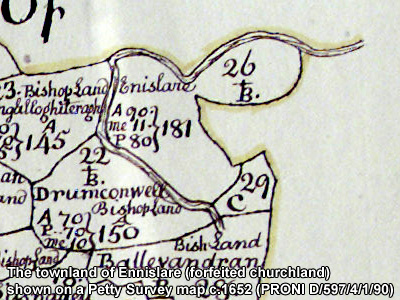 of
23. Bishop Land
Enislare
26
B.
A 90
me 11
P 80
181
A
145
22
B.
Drumconwell
Bishop Land
A 70
P 70
me 10
150
29
C
Bish Land
Ballevandran
B
The townland of Ennislare (forfeited churchland)
shown on a Petty Survey map c.1652 (PRONI D/597/4/1/90)